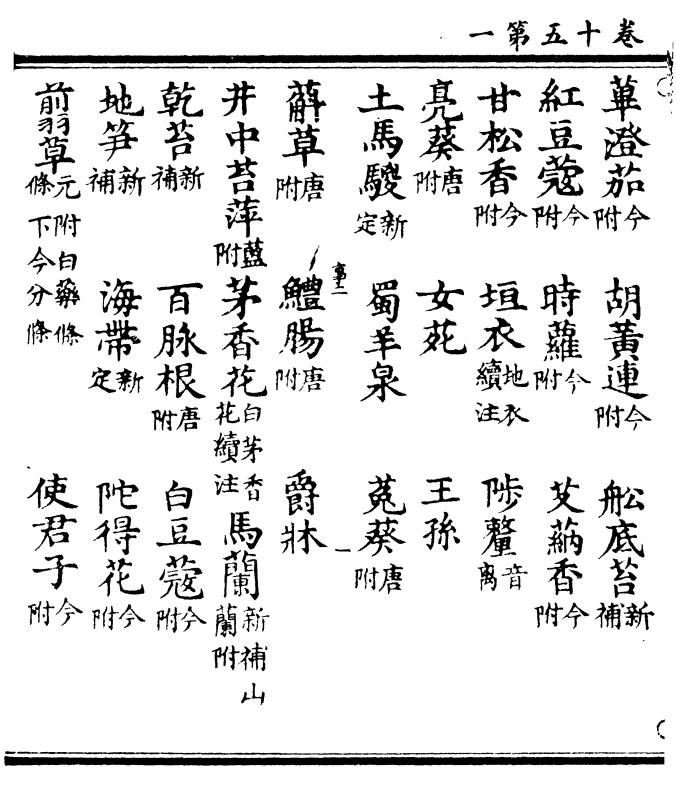 卷十五第一
蓽澄茄今附 胡黃連今附 舩底苔新補
紅豆蔻今附 時蘿今附 艾蒳香今附
甘松香今附 垣衣地衣續注 陟釐音离
鳧葵唐附 女菀 王孫
土馬騣新定 蜀羊泉 菟葵唐附
蔛草唐附 鱧腸唐附 爵牀
井中苔萍藍附 茅香花白茅香花續注 馬蘭新補山蘭附
乾苔新補 百脉根唐附 白豆蔻今附
地笋新補 海帶新定 陀得花今附
翦草元附白藥條下今分條 使君子今附